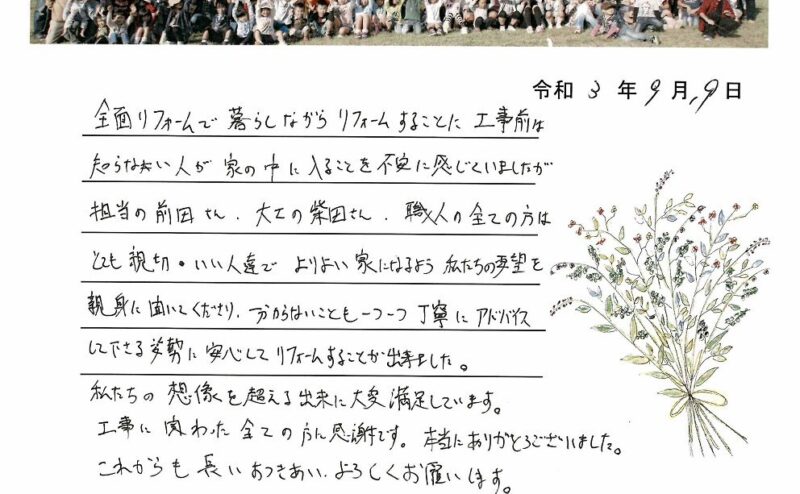 令和 3 年 9 月 9 日
全面リフォームで 暮らしながら リフォームすることに 工事前は
知らない人が 家の中に入ることを不安に感じていましたが
担当の前田さん、大工の柴田さん、職人の全ての方は
とても親切・いい人達で よりよい家になるよう 私たちの要望を
親身に聞いてくださり、分からないことも一つ一つ丁寧にアドバイス
して下さる姿勢に安心してリフォームすることが出来ました。
私たちの想像を超える出来に大変満足しています。
工事に関わった全ての方に感謝です。本当にありがとうございました。
これからも長いおつきあい、よろしくお願いします。